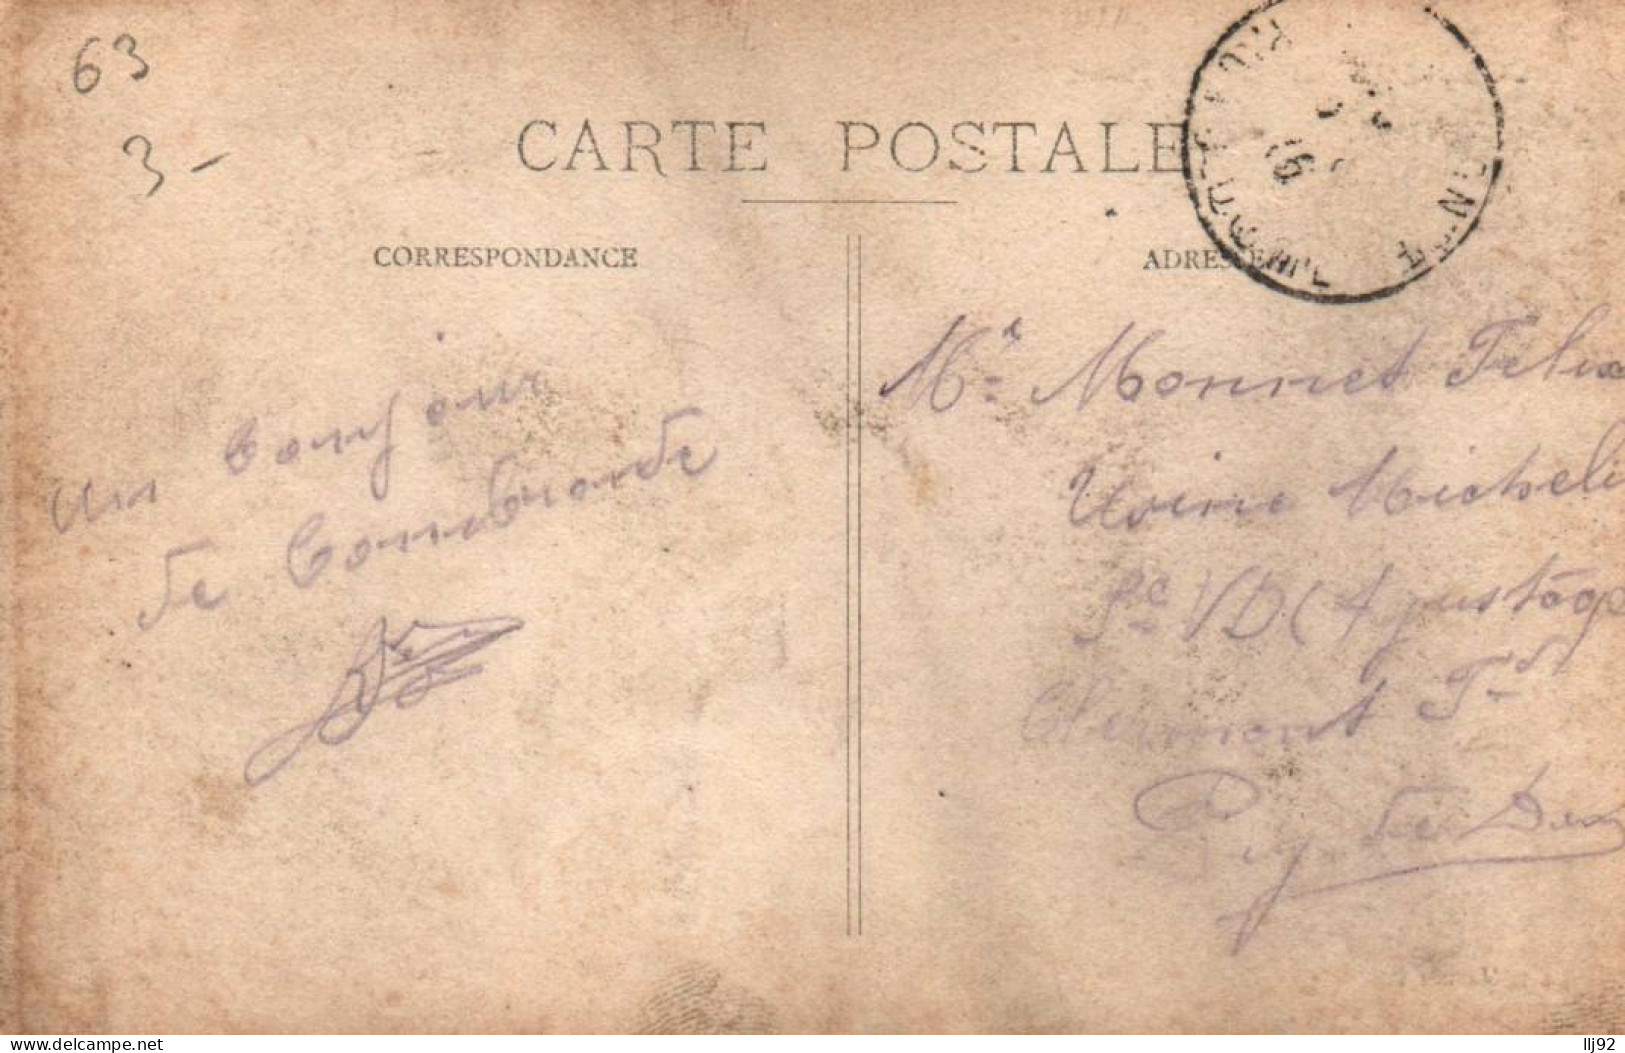 63
3 -
CARTE POSTALE
CORRESPONDANCE
ADRESSE
Un bonjour
de Combronde
Mr Monnet Félix
Usine Michelin
Sce VD (Ajustage
Clermont Fd
Puy de Dôme
16
www.delcampe.net
llj92